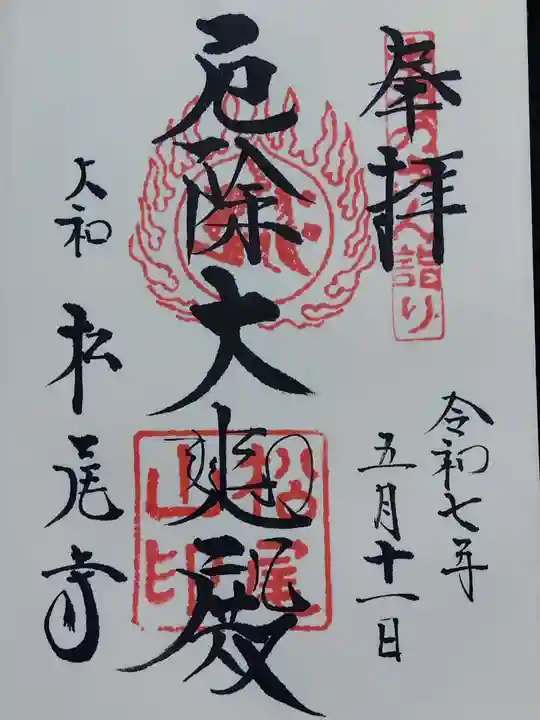 奉拝
令和七年
五月十一日
厄除大悲殿
大和 松尾寺
詣り
松尾
山印